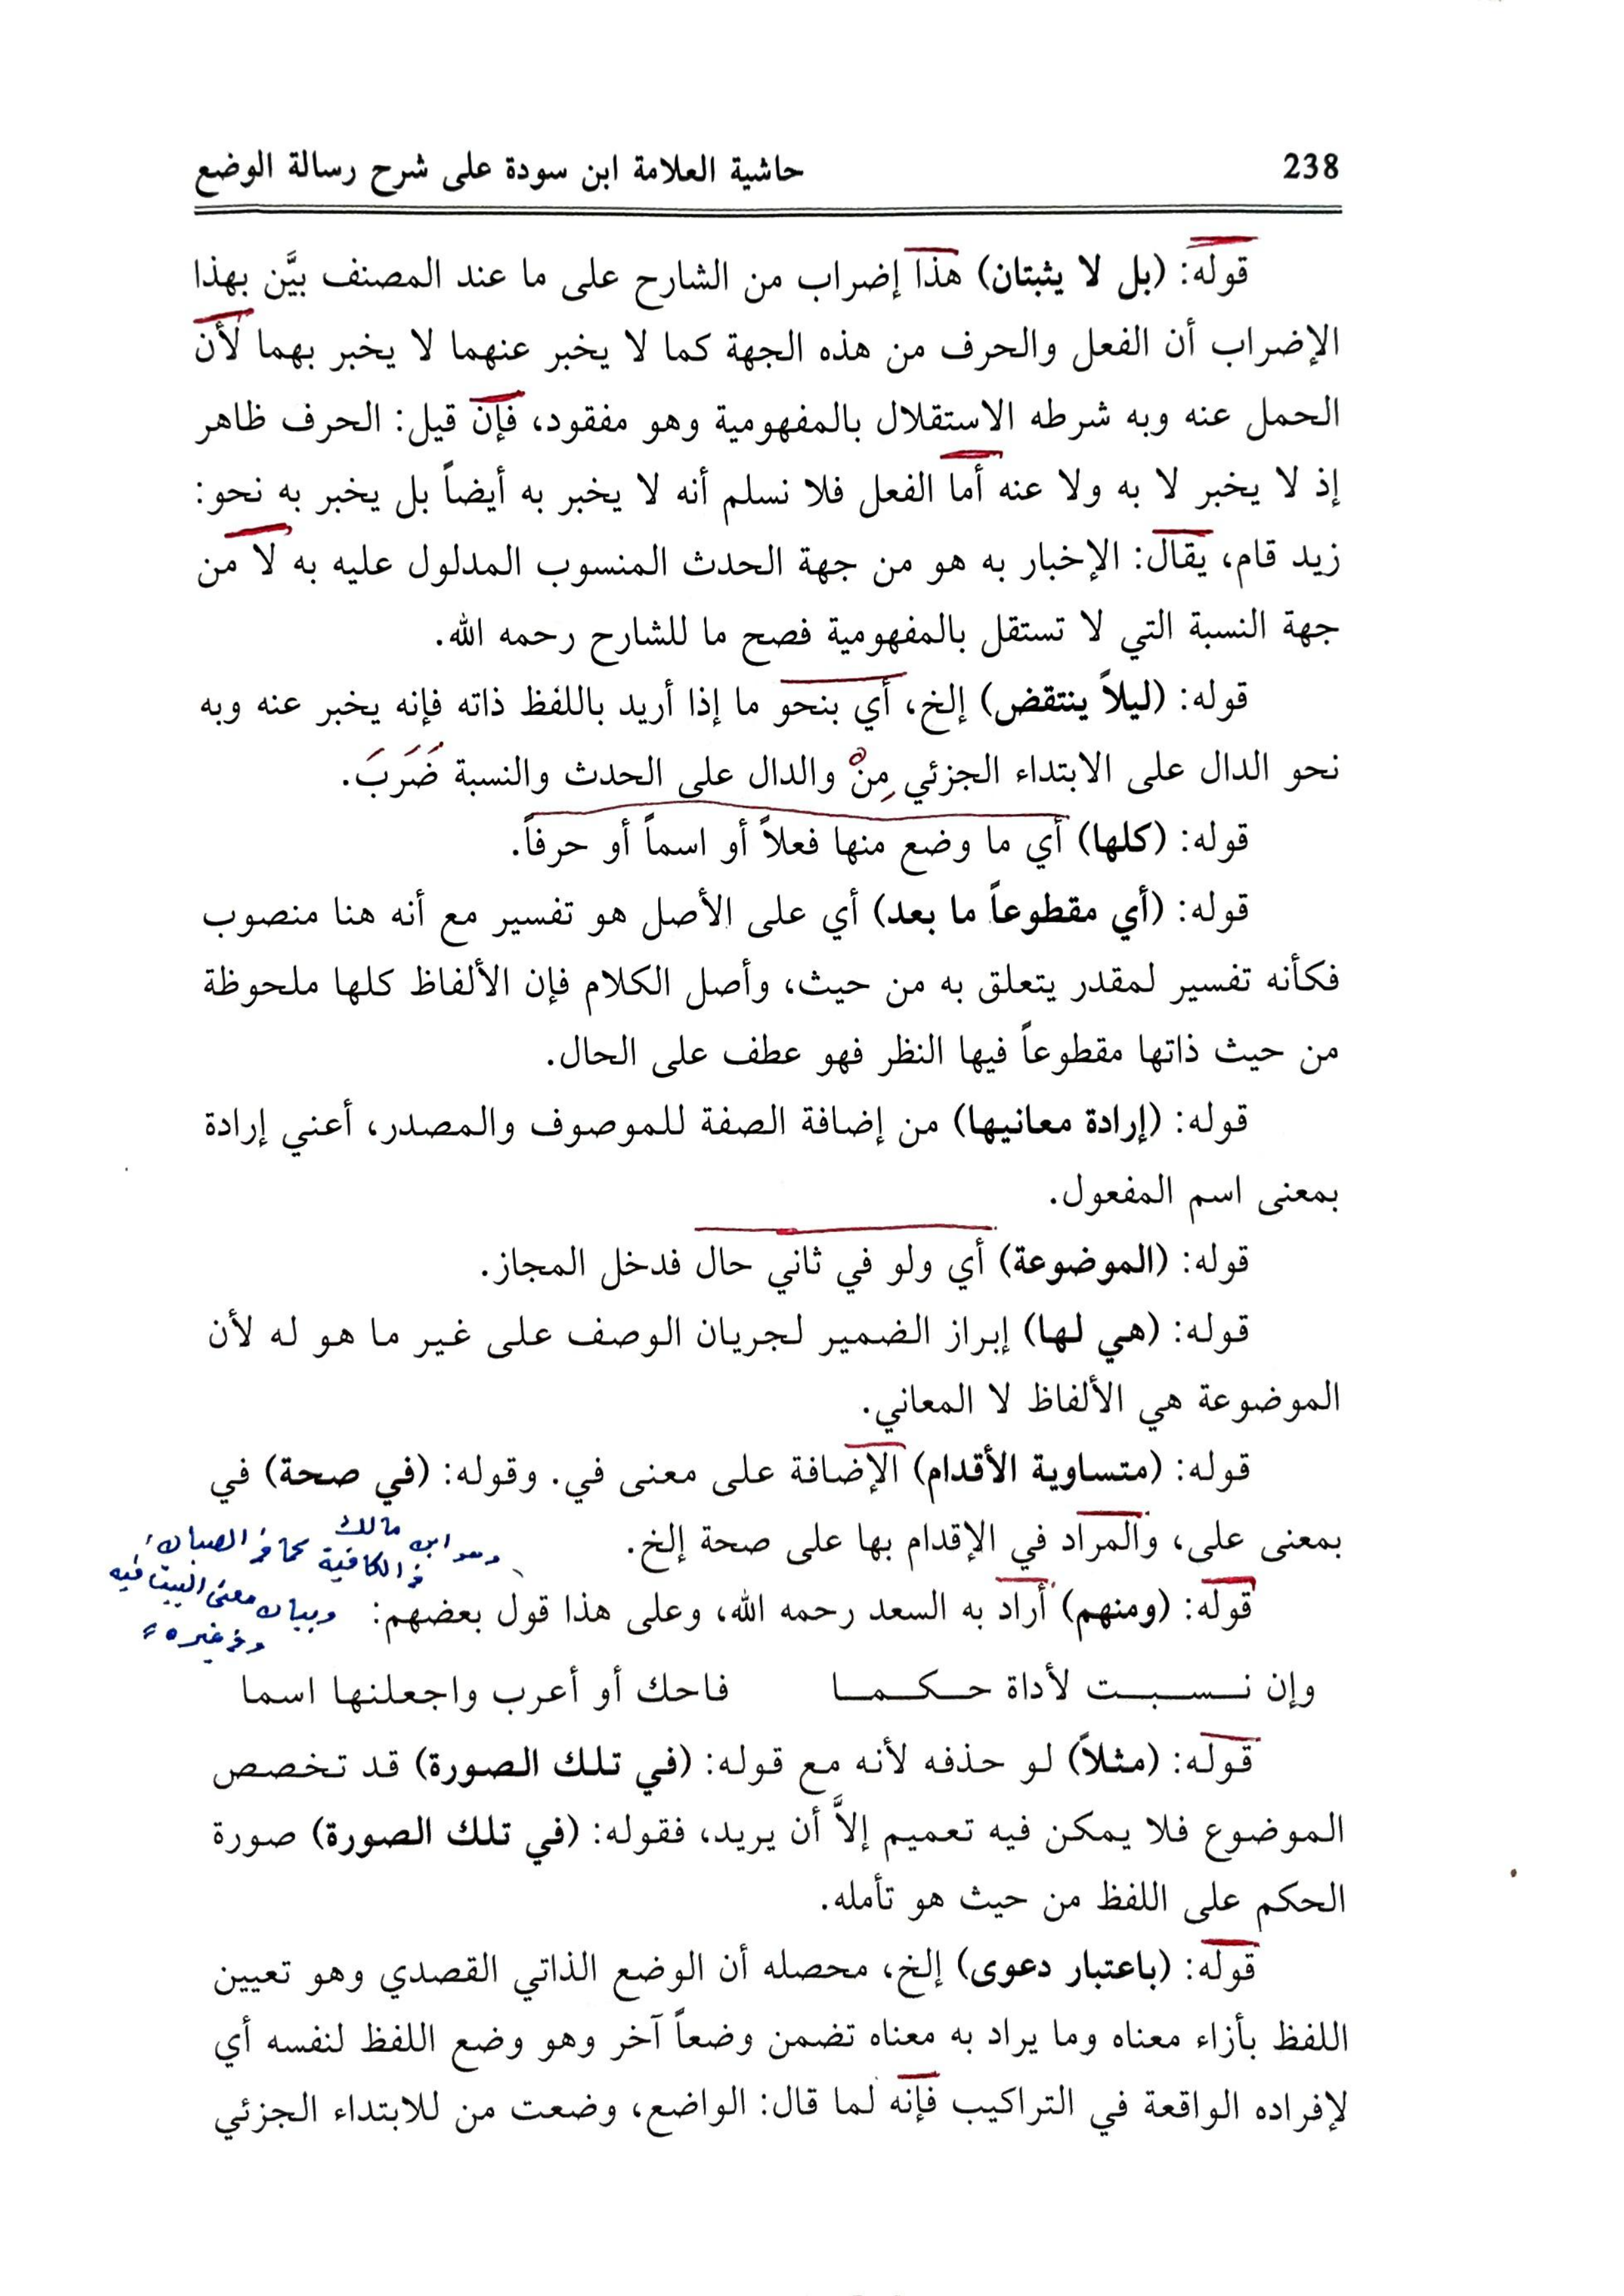 238
حاشية العلامة ابن سودة على شرح رسالة الوضع
قوله: (بل لا يثبتان) هذا إضراب من الشارح على ما عند المصنف بيَّن بهذا
الإضراب أن الفعل والحرف من هذه الجهة كما لا يخبر عنهما لا يخبر بهما لأن
الحمل عنه وبه شرطه الاستقلال بالمفهومية وهو مفقود، فإن قيل: الحرف ظاهر
إذ لا يخبر لا به ولا عنه أما الفعل فلا نسلم أنه لا يخبر به أيضاً بل يخبر به نحو:
زيد قام، يقال: الإخبار به هو من جهة الحدث المنسوب المدلول عليه به لا من
جهة النسبة التي لا تستقل بالمفهومية فصح ما للشارح رحمه الله.
قوله: (ليلاً ينتقض) إلخ، أي بنحو ما إذا أريد باللفظ ذاته فإنه يخبر عنه وبه
نحو الدال على الابتداء الجزئي مِنْ والدال على الحدث والنسبة ضَرَبَ.
قوله: (كلها) أي ما وضع منها فعلاً أو اسماً أو حرفاً.
قوله: (أي مقطوعاً ما بعد) أي على الأصل هو تفسير مع أنه هنا منصوب
فكأنه تفسير لمقدر يتعلق به من حيث، وأصل الكلام فإن الألفاظ كلها ملحوظة
من حيث ذاتها مقطوعاً فيها النظر فهو عطف على الحال.
قوله: (إرادة معانيها) من إضافة الصفة للموصوف والمصدر، أعني إرادة
بمعنى اسم المفعول.
قوله: (الموضوعة) أي ولو في ثاني حال فدخل المجاز.
قوله: (هي لها) إبراز الضمير لجريان الوصف على غير ما هو له لأن
الموضوعة هي الألفاظ لا المعاني.
قوله: (متساوية الأقدام) الإضافة على معنى في. وقوله: (في صحة) في
بمعنى على، والمراد في الإقدام بها على صحة إلخ.
وهو ابن مالك
في الكافية كما في الصبان،
وبيان معنى البيت فيه
وفي غيره
قوله: (ومنهم) أراد به السعد رحمه الله، وعلى هذا قول بعضهم:
وإن نـسـبـت لأداة حـكـمـا فاحك أو أعرب واجعلنها اسما
قوله: (مثلاً) لو حذفه لأنه مع قوله: (في تلك الصورة) قد تخصص
الموضوع فلا يمكن فيه تعميم إلاَّ أن يريد، فقوله: (في تلك الصورة) صورة
الحكم على اللفظ من حيث هو تأمله.
قوله: (باعتبار دعوى) إلخ، محصله أن الوضع الذاتي القصدي وهو تعيين
اللفظ بأزاء معناه وما يراد به معناه تضمن وضعاً آخر وهو وضع اللفظ لنفسه أي
لإفراده الواقعة في التراكيب فإنه لما قال: الواضع، وضعت من للابتداء الجزئي